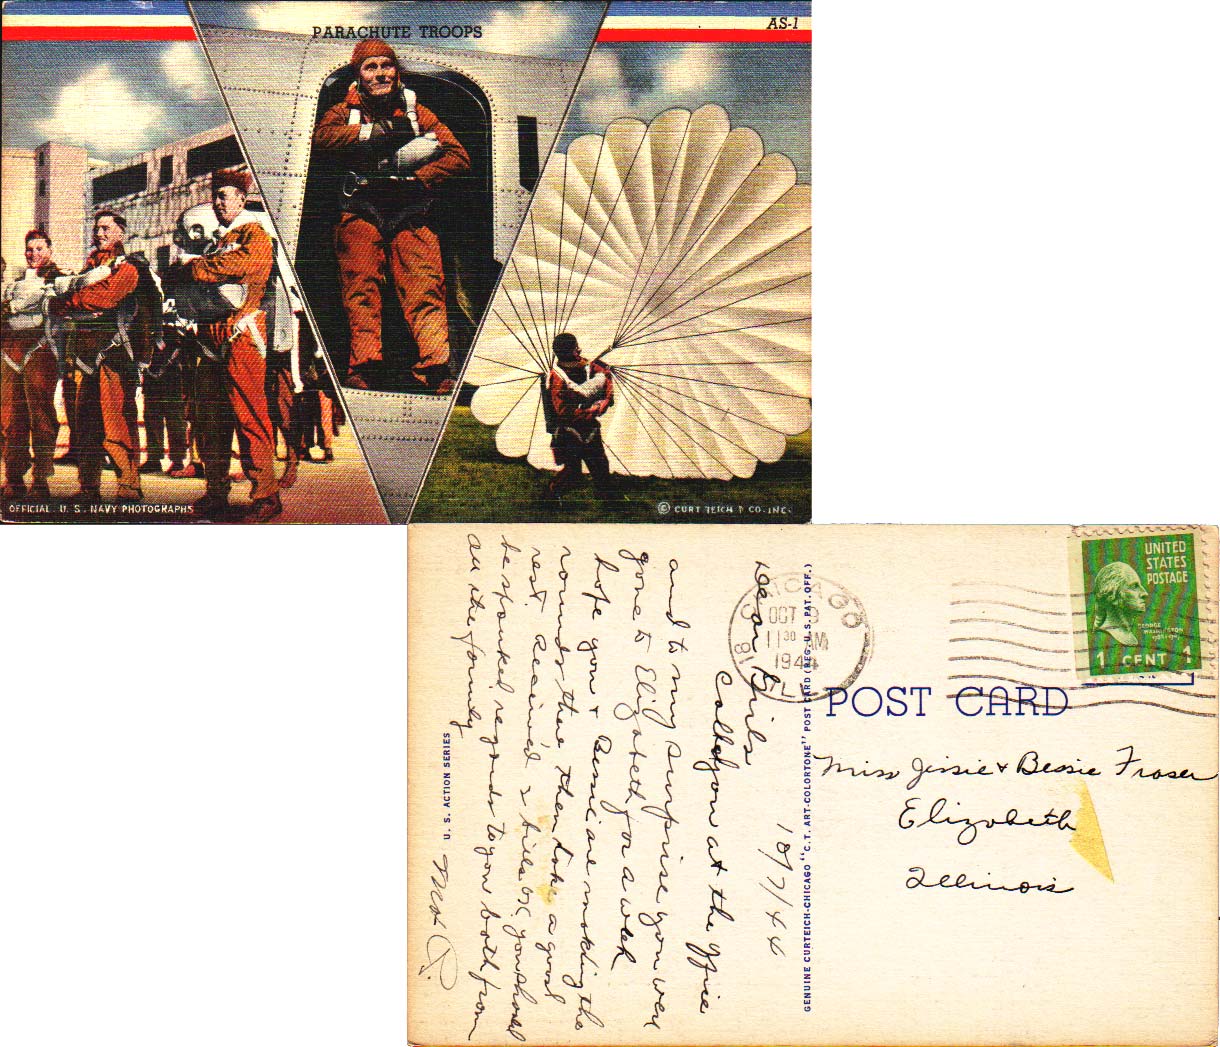 PARACHUTE TROOPS
AS-1
OFFICIAL U. S. NAVY PHOTOGRAPHS
© CURT TEICH & CO. INC.
10/7/44
Dear Girls
Called you at the office
and to my surprise you were
gone to Elizabeth for a week
hope you & Bessie are making the
rounds there then take a good
rest. Received 2 bills
be spanked, regards to you both from
all the family
U. S. ACTION SERIES
GENUINE CURTEICH-CHICAGO "C.T. ART-COLORTONE" POST CARD (REG. U.S. PAT. OFF.)
CHICAGO
18
OCT 9
11 30 AM
1944
ILL
UNITED
STATES
POSTAGE
GEORGE
WASHINGTON
1 CENT 1
POST CARD
Miss Jessie & Bessie Fraser
Elizabeth
Illinois